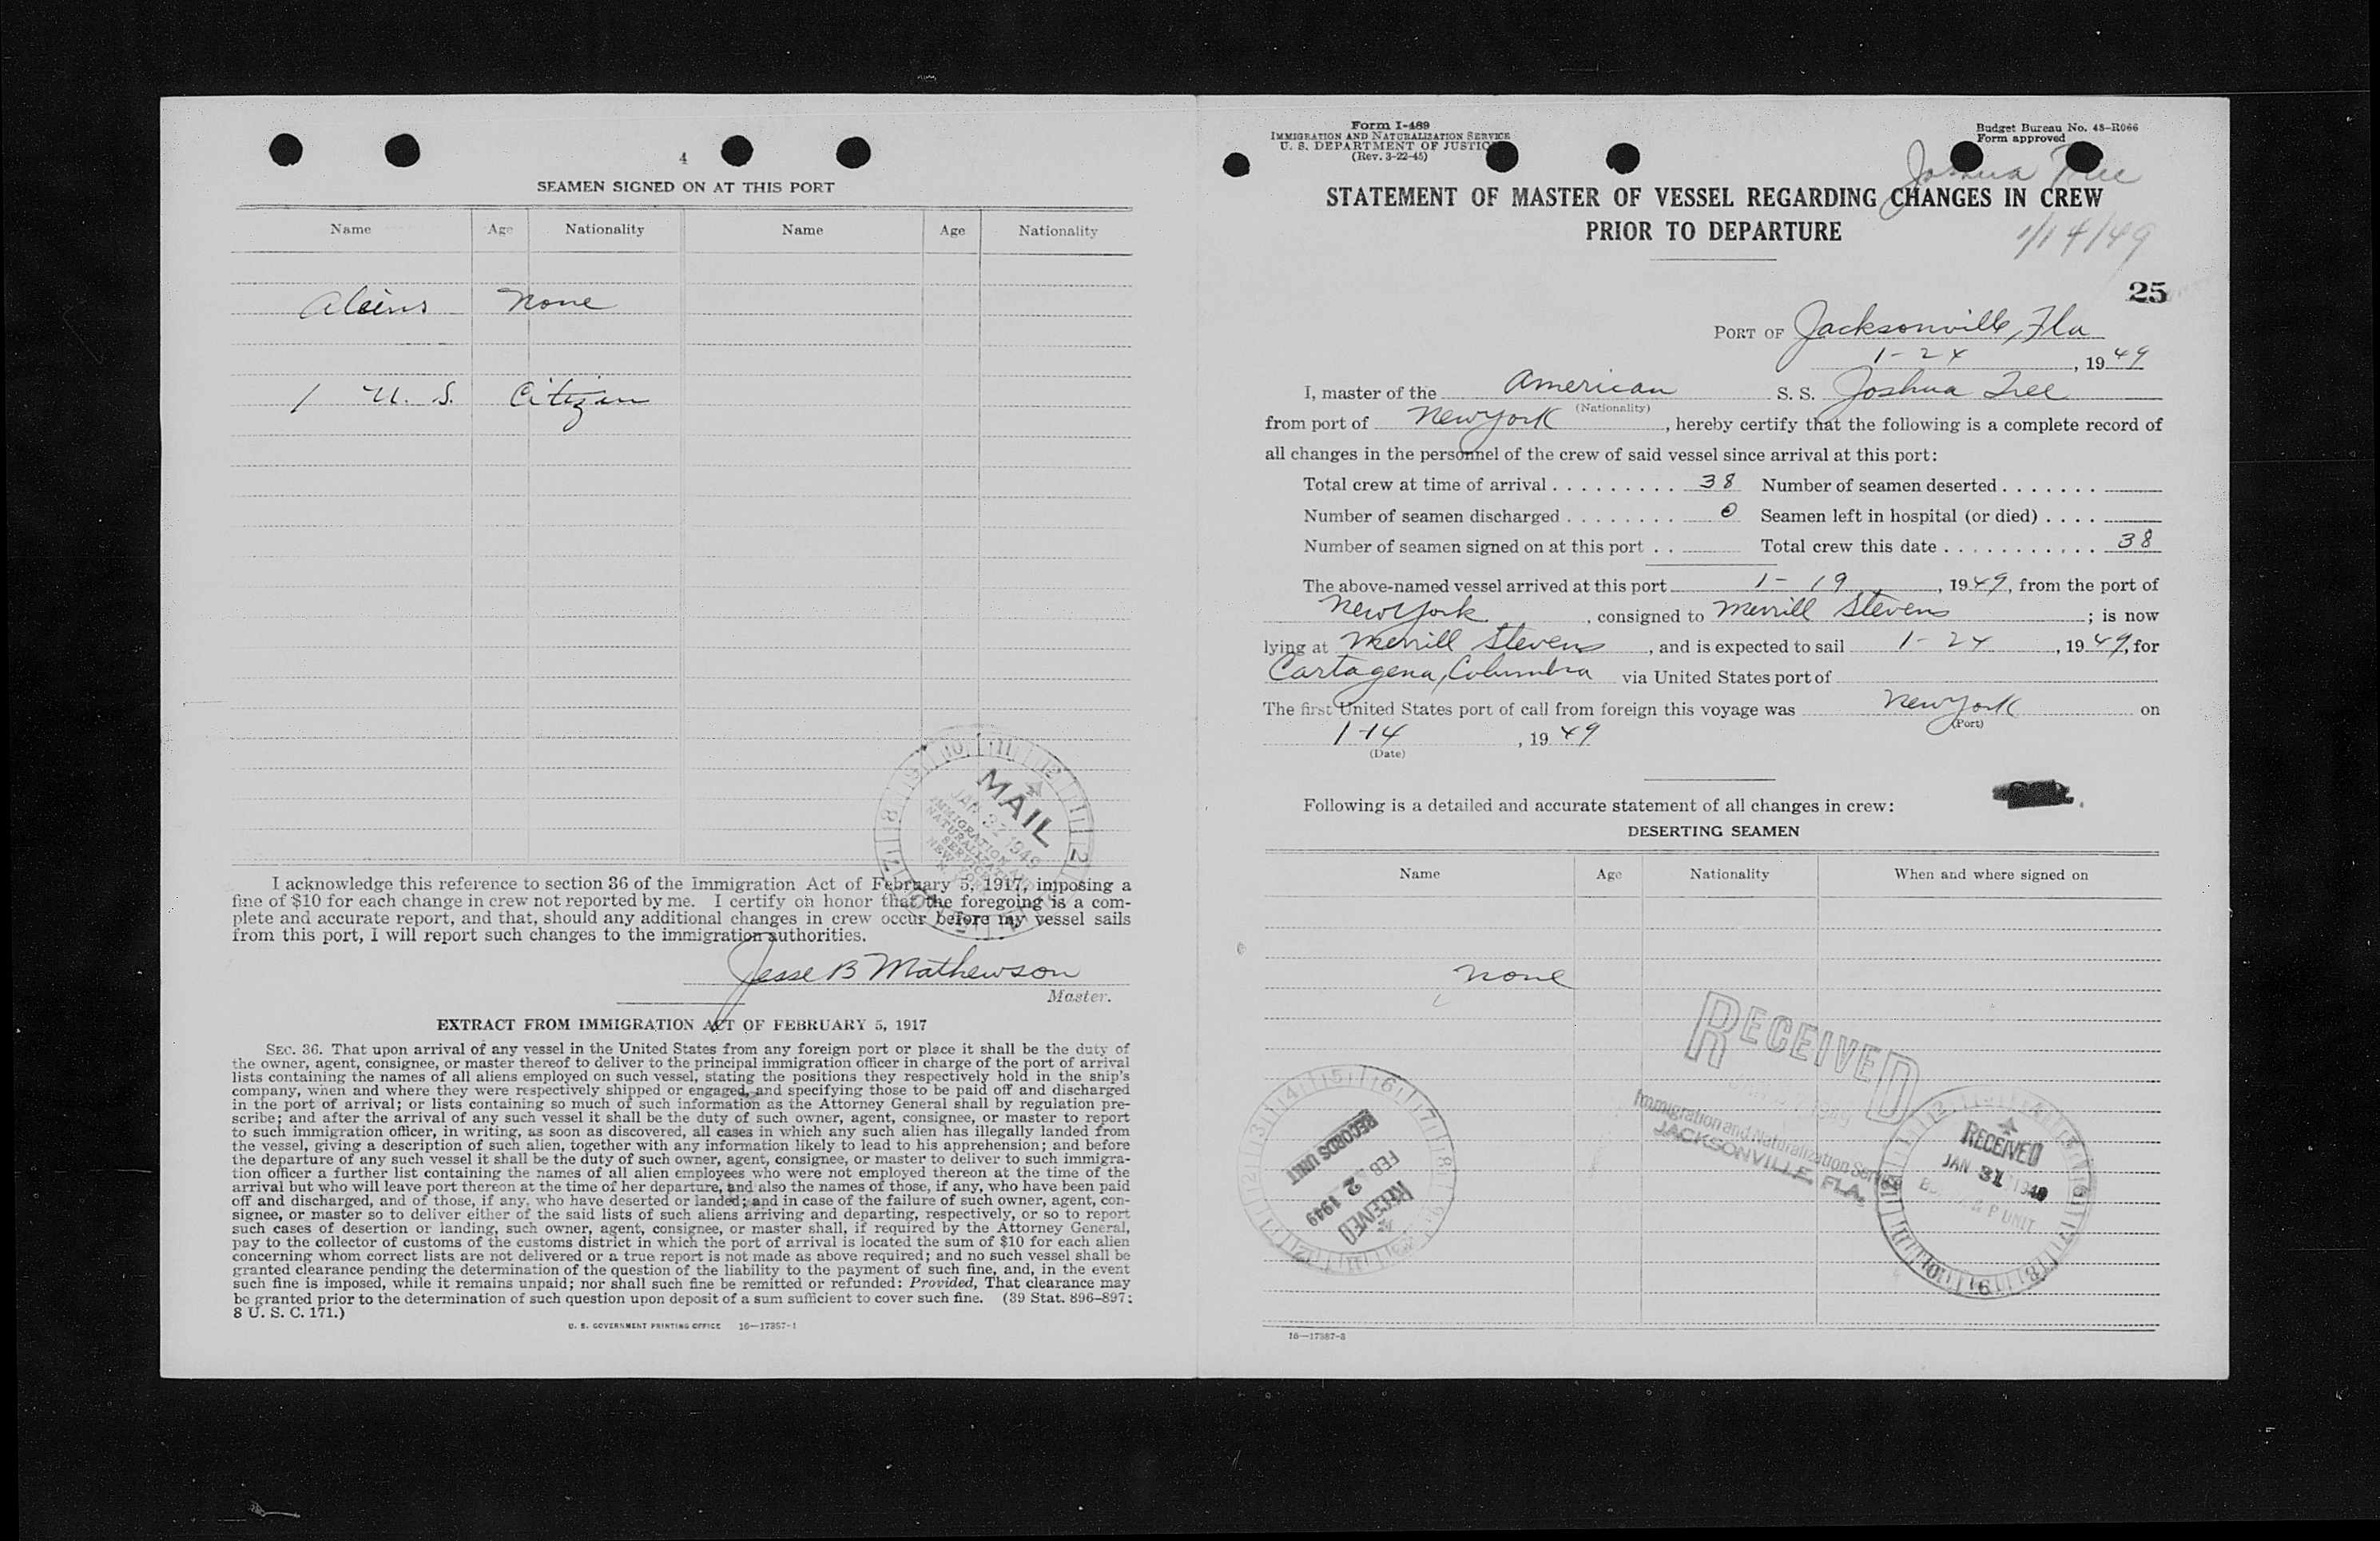 4
SEAMEN SIGNED ON AT THIS PORT
Name Age Nationality Name Age Nationality
Aliens None
1 U. S. Citizen
MAIL
JAN 1949
IMMIGRATION AND
NATURALIZATION
SERVICE
NEW YORK
I acknowledge this reference to section 36 of the Immigration Act of February 5, 1917, imposing a
fine of $10 for each change in crew not reported by me. I certify on honor that the foregoing is a com-
plete and accurate report, and that, should any additional changes in crew occur before my vessel sails
from this port, I will report such changes to the immigration authorities.
Jesse B Mathewson
Master.
EXTRACT FROM IMMIGRATION ACT OF FEBRUARY 5, 1917
SEC. 36. That upon arrival of any vessel in the United States from any foreign port or place it shall be the duty of
the owner, agent, consignee, or master thereof to deliver to the principal immigration officer in charge of the port of arrival
lists containing the names of all aliens employed on such vessel, stating the positions they respectively hold in the ship's
company, when and where they were respectively shipped or engaged, and specifying those to be paid off and discharged
in the port of arrival; or lists containing so much of such information as the Attorney General shall by regulation pre-
scribe; and after the arrival of any such vessel it shall be the duty of such owner, agent, consignee, or master to report
to such immigration officer, in writing, as soon as discovered, all cases in which any such alien has illegally landed from
the vessel, giving a description of such alien, together with any information likely to lead to his apprehension; and before
the departure of any such vessel it shall be the duty of such owner, agent, consignee, or master to deliver to such immigra-
tion officer a further list containing the names of all alien employees who were not employed thereon at the time of the
arrival but who will leave port thereon at the time of her departure, and also the names of those, if any, who have been paid
off and discharged, and of those, if any, who have deserted or landed; and in case of the failure of such owner, agent, con-
signee, or master so to deliver either of the said lists of such aliens arriving and departing, respectively, or so to report
such cases of desertion or landing, such owner, agent, consignee, or master shall, if required by the Attorney General,
pay to the collector of customs of the customs district in which the port of arrival is located the sum of $10 for each alien
concerning whom correct lists are not delivered or a true report is not made as above required; and no such vessel shall be
granted clearance pending the determination of the question of the liability to the payment of such fine, and, in the event
such fine is imposed, while it remains unpaid; nor shall such fine be remitted or refunded: Provided, That clearance may
be granted prior to the determination of such question upon deposit of a sum sufficient to cover such fine. (39 Stat. 896-897;
8 U. S. C. 171.)
U. S. GOVERNMENT PRINTING OFFICE 16—17387-1
Form I-489
IMMIGRATION AND NATURALIZATION SERVICE
U. S. DEPARTMENT OF JUSTICE
(Rev. 3-22-45)
Budget Bureau No. 43-R066
Form approved
Joshua Tree
STATEMENT OF MASTER OF VESSEL REGARDING CHANGES IN CREW
PRIOR TO DEPARTURE
1/14/49
25
PORT OF Jacksonville, Fla
1-24, 1949
I, master of the American S. S. Joshua Tree
(Nationality)
from port of New York, hereby certify that the following is a complete record of
all changes in the personnel of the crew of said vessel since arrival at this port:
Total crew at time of arrival . . . . . . . . . . 38 Number of seamen deserted . . . . . . .
Number of seamen discharged . . . . . . . . 0 Seamen left in hospital (or died) . . . .
Number of seamen signed on at this port . . Total crew this date . . . . . . . . . . . 38
The above-named vessel arrived at this port 1-19, 1949, from the port of
New York, consigned to Merrill Stevens; is now
lying at Merrill Stevens, and is expected to sail 1-24, 1949, for
Cartagena, Columbia via United States port of
The first United States port of call from foreign this voyage was New York on
(Port)
1-14, 1949
(Date)
Following is a detailed and accurate statement of all changes in crew:
DESERTING SEAMEN
Name Age Nationality When and where signed on
None
RECEIVED
Immigration and Naturalization Service
JACKSONVILLE, FLA.
RECORDS UNIT
FEB 2 1949
RECEIVED
RECEIVED
JAN 31 1949
P UNIT
16—17387-3